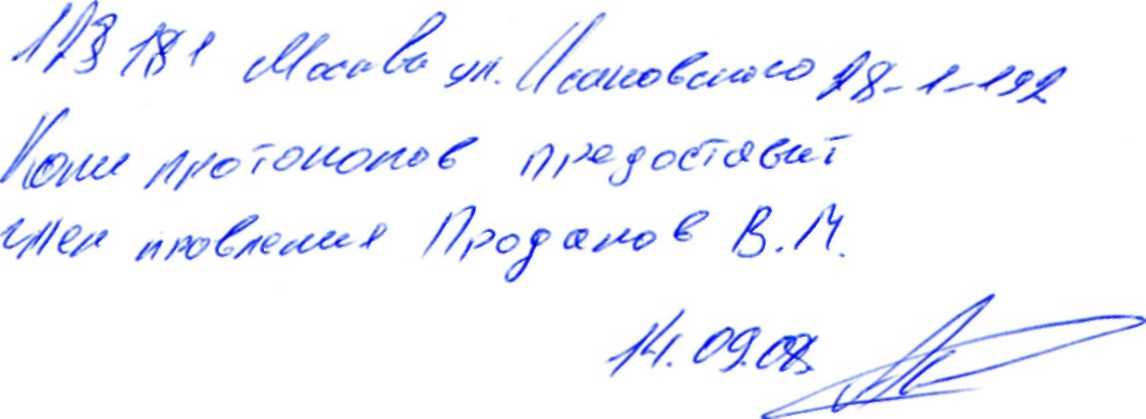 123181 Москва ул. Исаковского 28-1-192
Копии протоколов предоставит
член правления Проданов В.М.
14.09.08